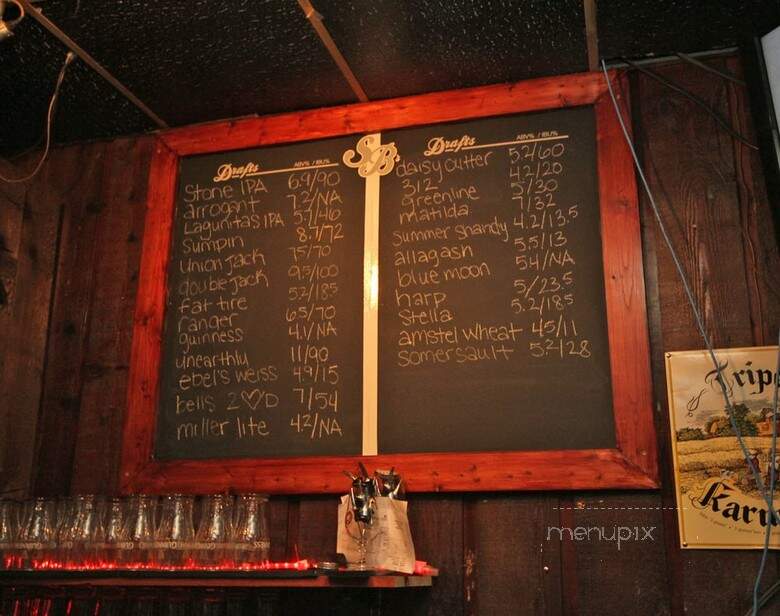 Drafts ABV% / IBU%
Stone IPA 6.9/90
arrogant 7.2/NA
Lagunitas IPA 5.7/46
Sumpin 8.7/72
Union Jack 75/70
double jack 9.5/100
fat tire 5.2/18.5
ranger 6.5/70
guinness 4.1/NA
unearthly 11/90
ebel's weiss 4.9/15
bells 2♡D 7/54
miller lite 4.2/NA
SB's
Drafts ABV% / IBU%
daisy cutter 5.2/60
312 4.2/20
greenline 5/30
matilda 7/32
summer shandy 4.2/13.5
allagash 5.5/13
blue moon 5.4/NA
harp 5/23.5
Stella 5.2/18.5
amstel wheat 4.5/11
somersault 5.2/28
menupix